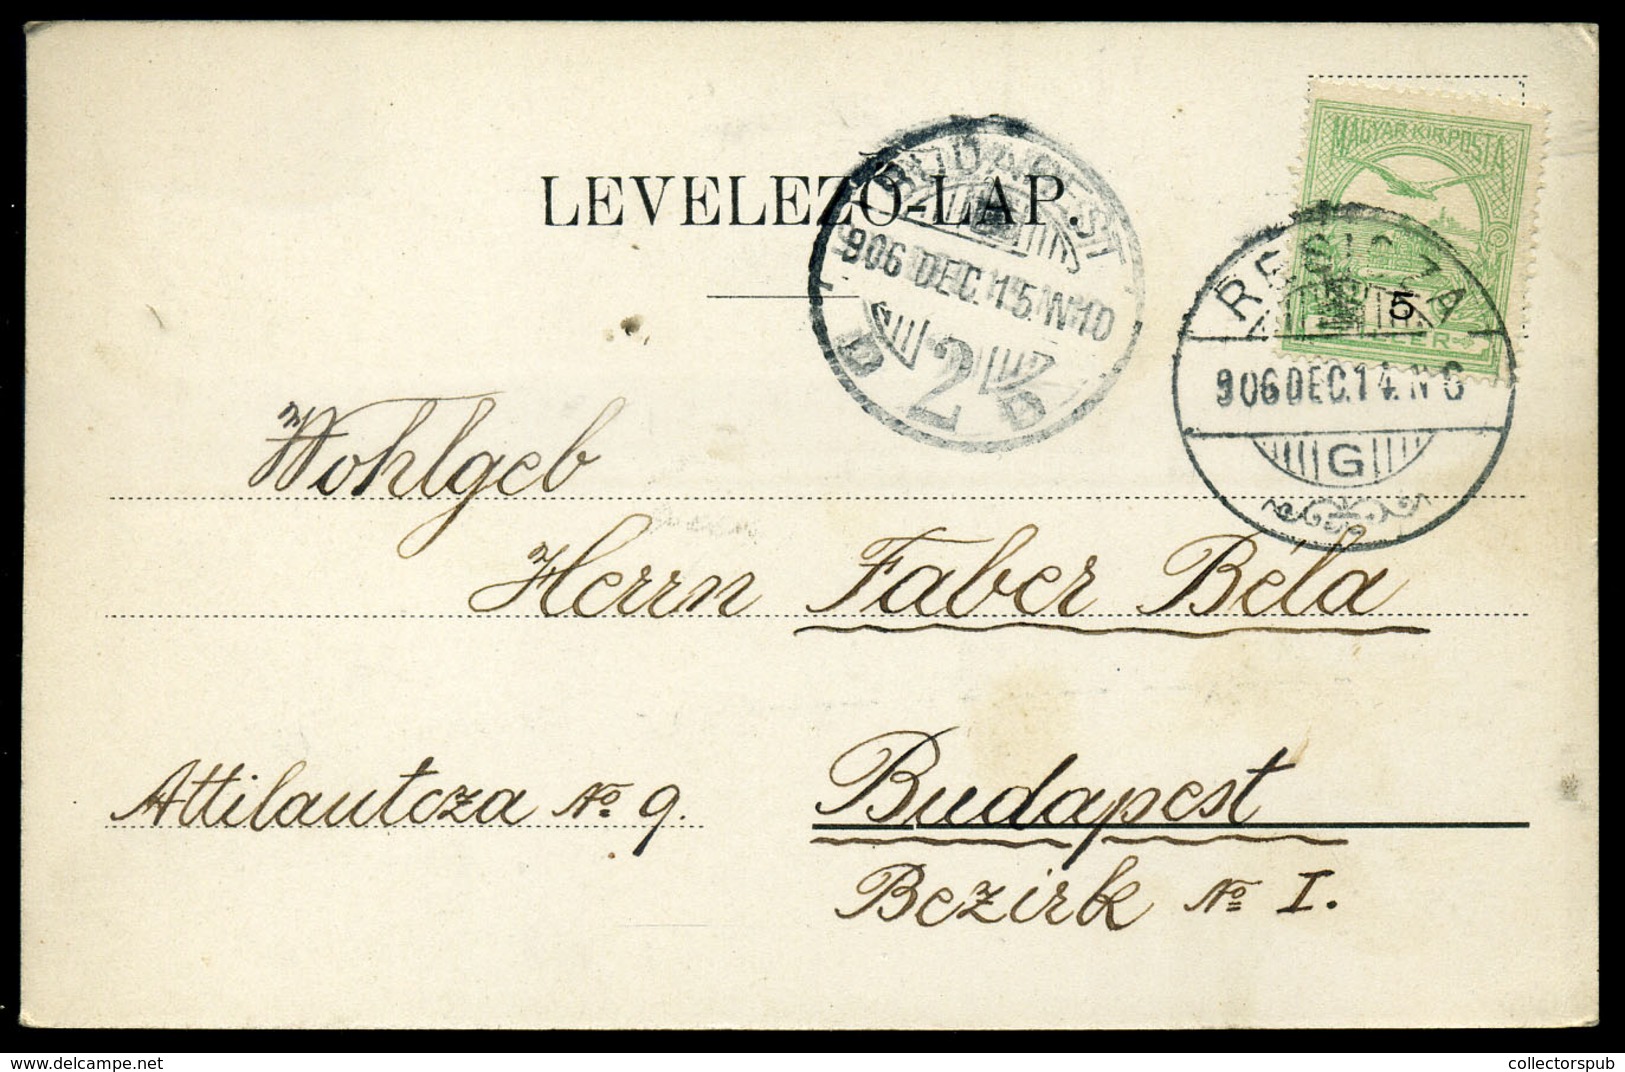 LEVELEZŐ-LAP.
MAGYAR KIR. POSTA
5
BUDAPEST
906 DEC. 15. N 10
2
B B
RESICZA
906 DEC. 14. N 6
G
Wohlgeb
Herrn Faber Béla
Attilautcza No. 9.
Budapest
Bezirk No I.
collectorspub